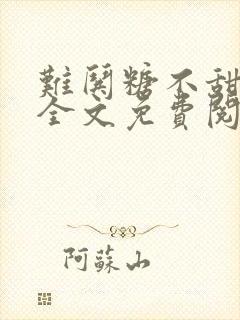 難闋糖不甜
全文免費閱
阿蘇山